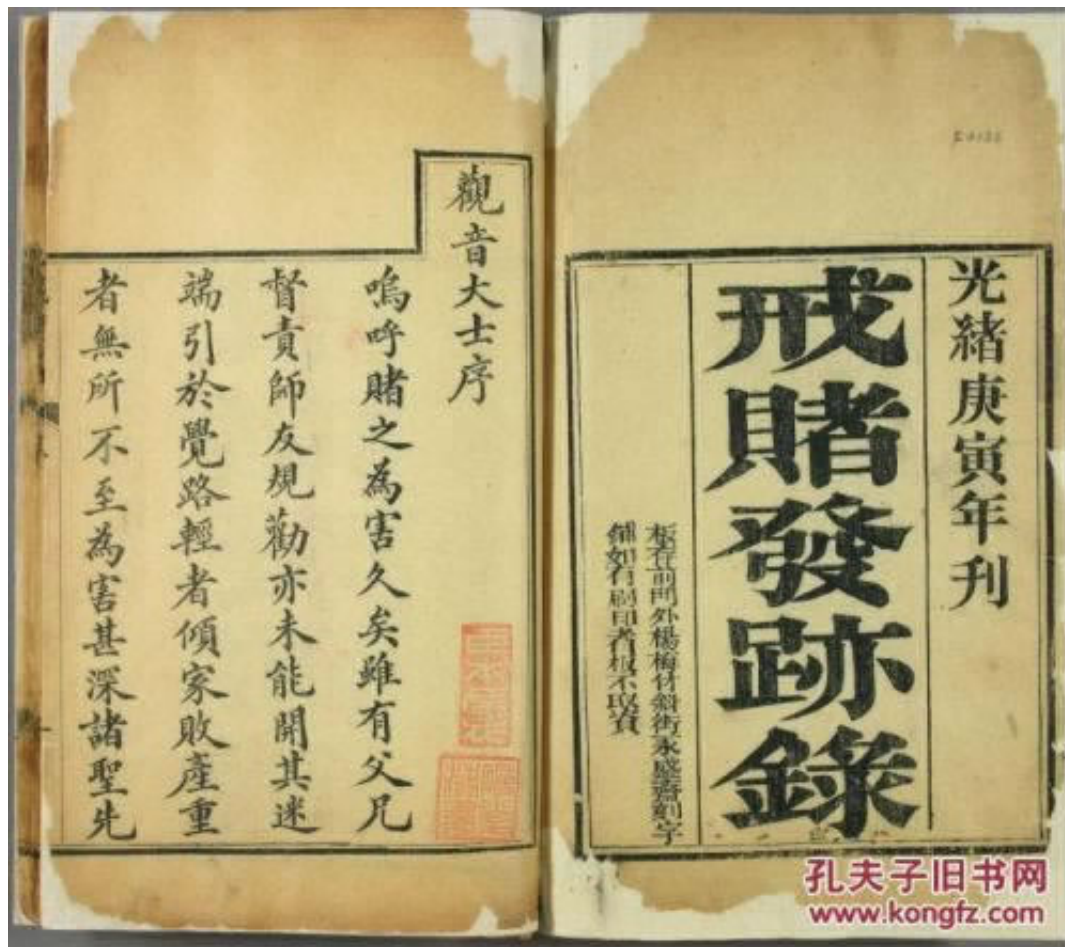 光緒庚寅年刋
戒賭發跡錄
板存前門外楊梅竹斜街永盛齋刻字
鋪如有刷印者板不取資
觀音大士序
嗚呼賭之為害久矣雖有父兄
督責師友規勸亦未能開其迷
端引於覺路輕者傾家敗產重
者無所不至為害甚深諸聖先
孔夫子旧书网
www.kongfz.com